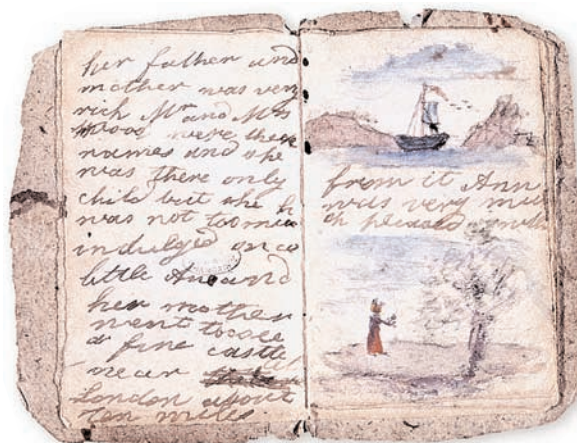 her father and
mother was very
rich Mr and Mrs
Wood were there
names and she
was there only
child but she
was not toomuch
indulged once
little Ane and
her mother
went to see
a fine castle
near
London about
ten miles
from it Ann
was very mu
ch pleased with